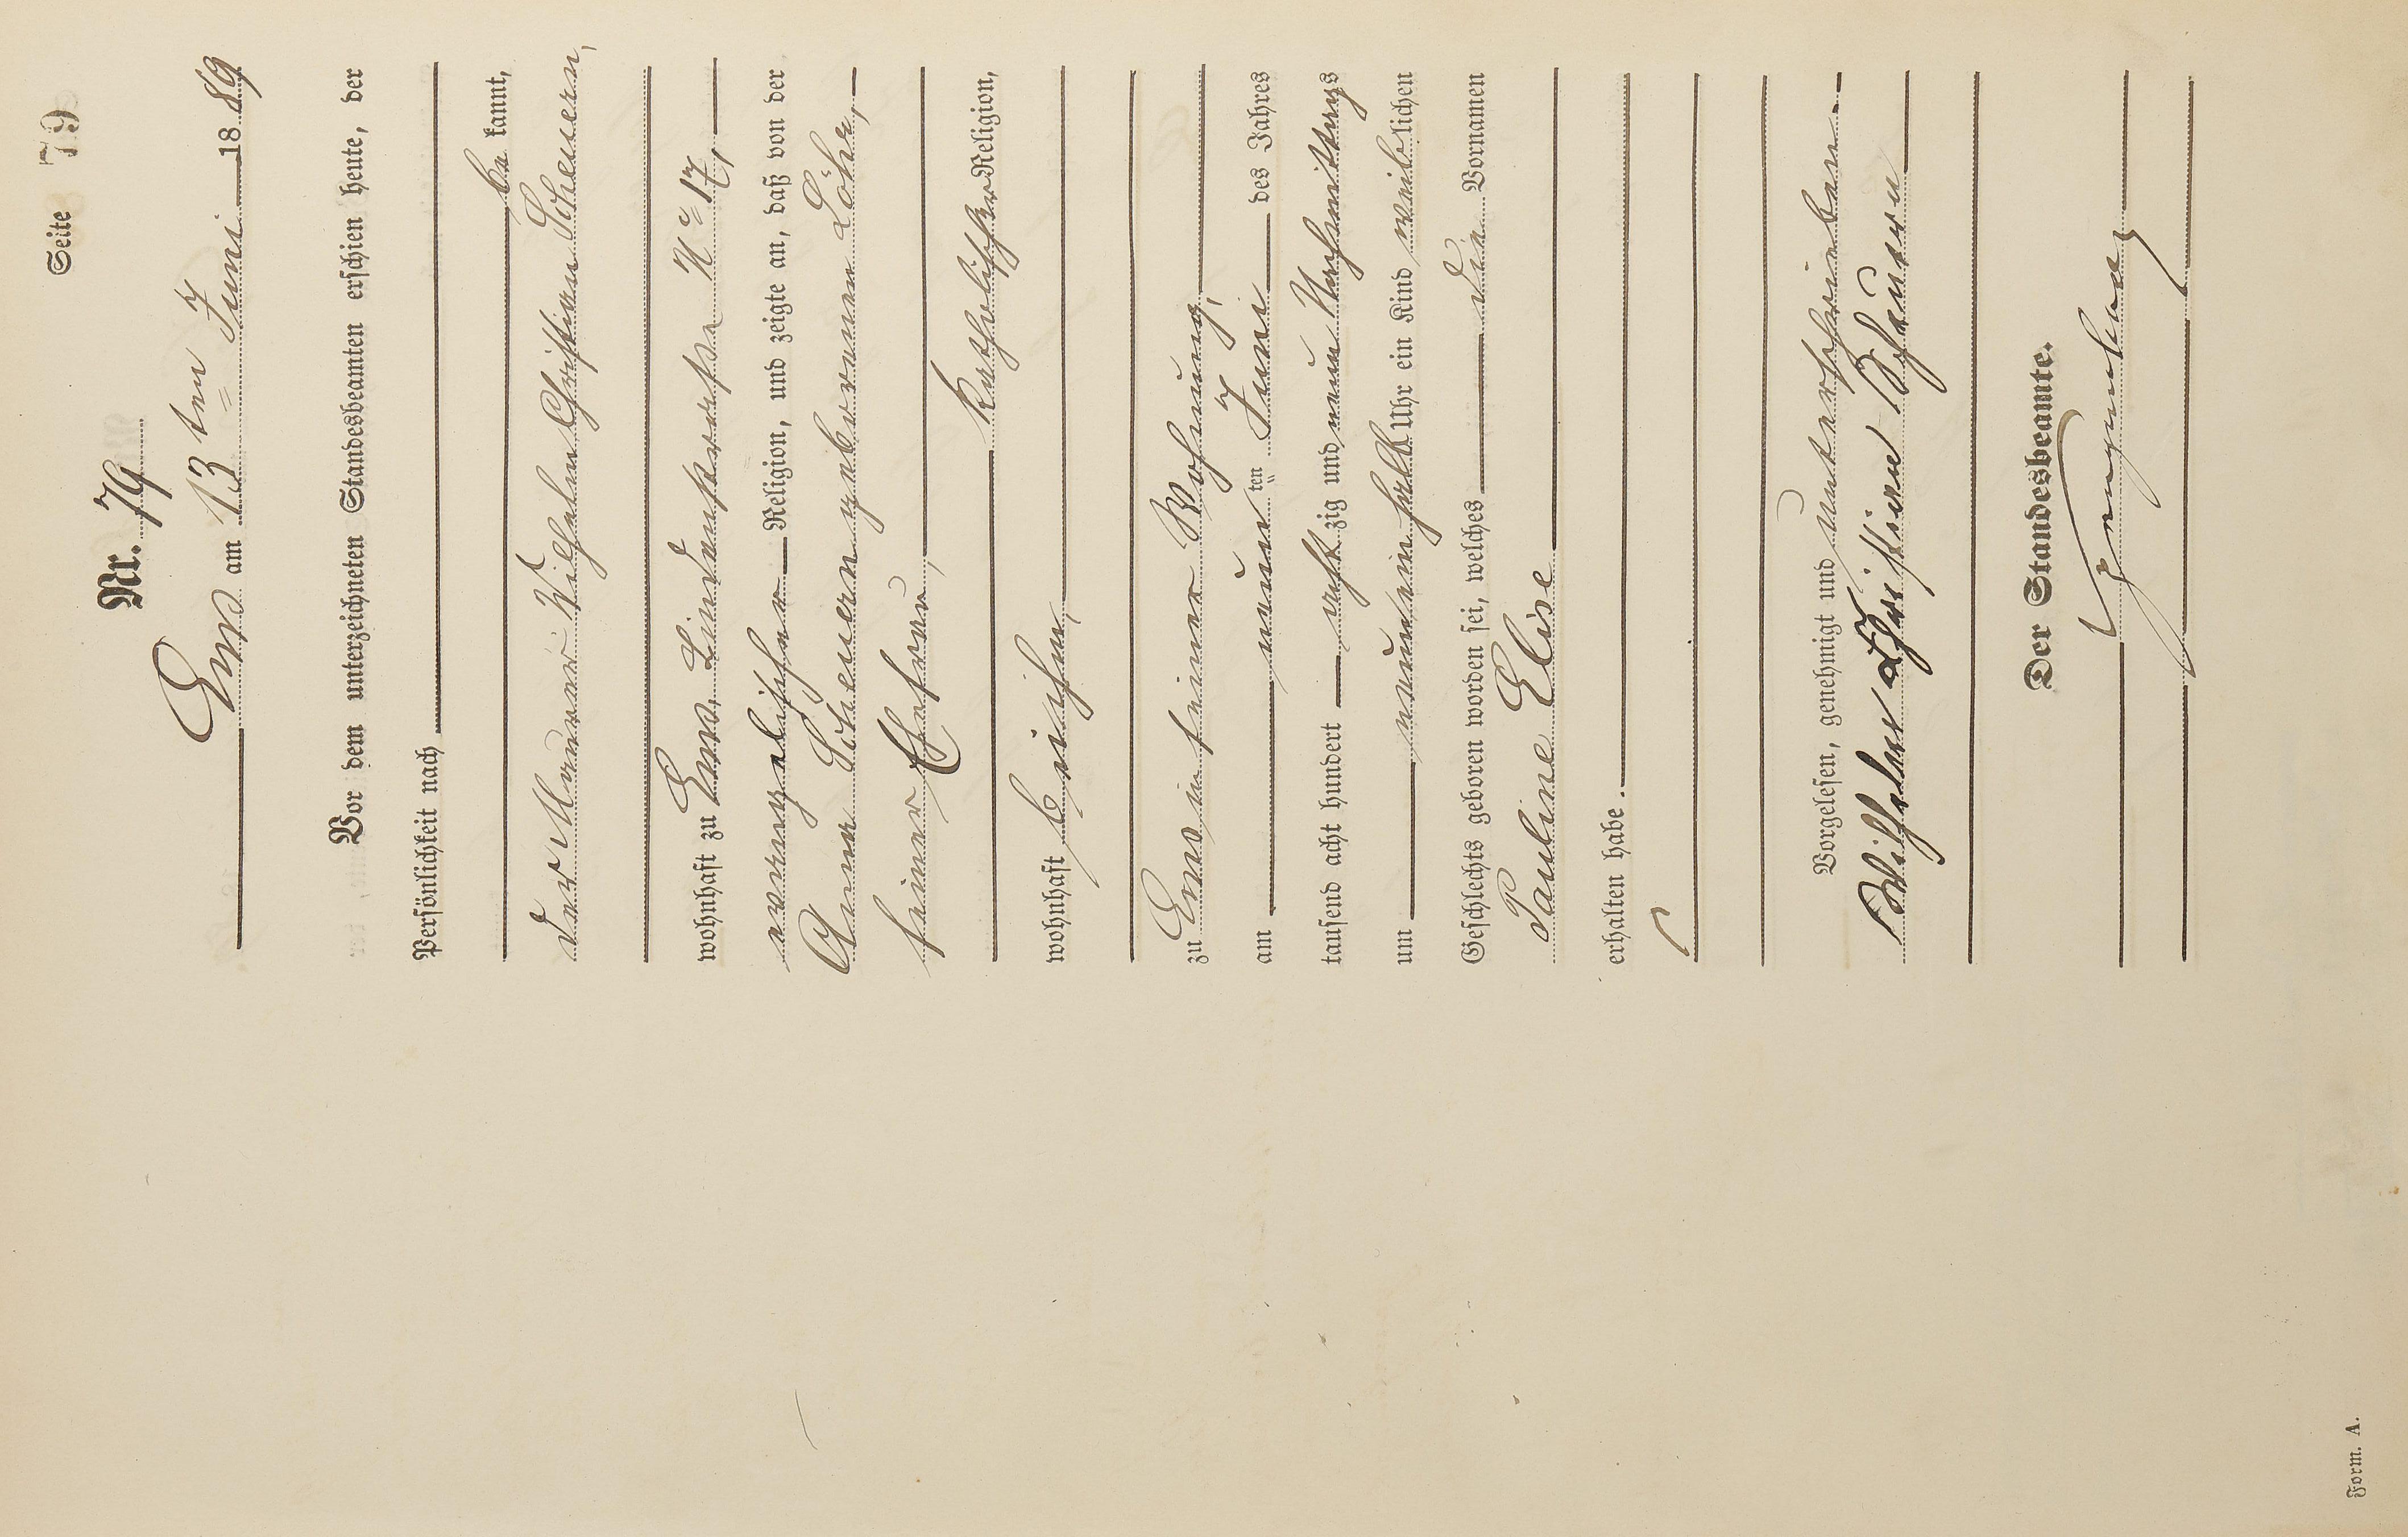 Seite 79
Nr. 79
Ems am 13 ten Juni 1889
Vor dem unterzeichneten Standesbeamten erschien heute, der
Persönlichkeit nach
be kannt,
der Maurer Wilhelm Christian Scheuern,
wohnhaft zu Ems, Lindenstraße No 17,
evangelischer Religion, und zeigte an, daß von der
Anna Scheuern geborenen Löhr,
seiner Ehefrau,
katholischer Religion,
wohnhaft bei ihm,
zu Ems in seiner Wohnung,
am neunten Juni des Jahres
tausend acht hundert acht zig und neun Nachmittags
um neunein halb Uhr ein Kind weiblichen
Geschlechts geboren worden sei, welches die Vornamen
Pauline Elise
erhalten habe.
Vorgelesen, genehmigt und unterschrieben.
Wilhelm Christian Scheuern
Der Standesbeamte.
Form. A.